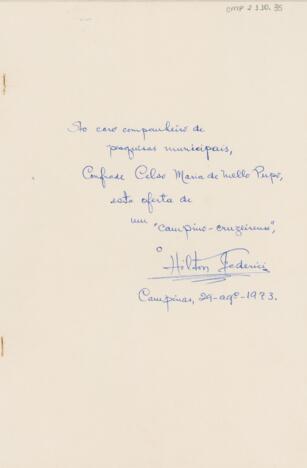 CMP 2.1.10.35
Ao caro companheiro de
pesquisas municipais,
Confrade Celso Maria de Mello Pupo,
esta oferta de
um "campino-cruzeirense",
o
Hilton Federici
Campinas, 29-agº-1973.